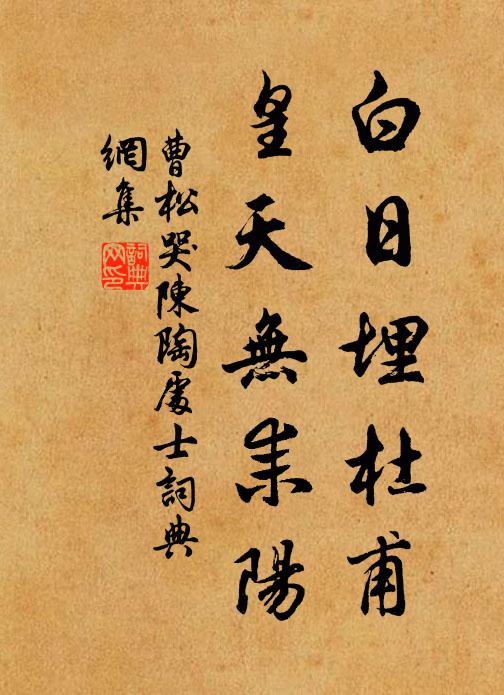 白日埋杜甫
皇天無耒陽
曹松哭陳陶處士詞典
網集
詞典網印